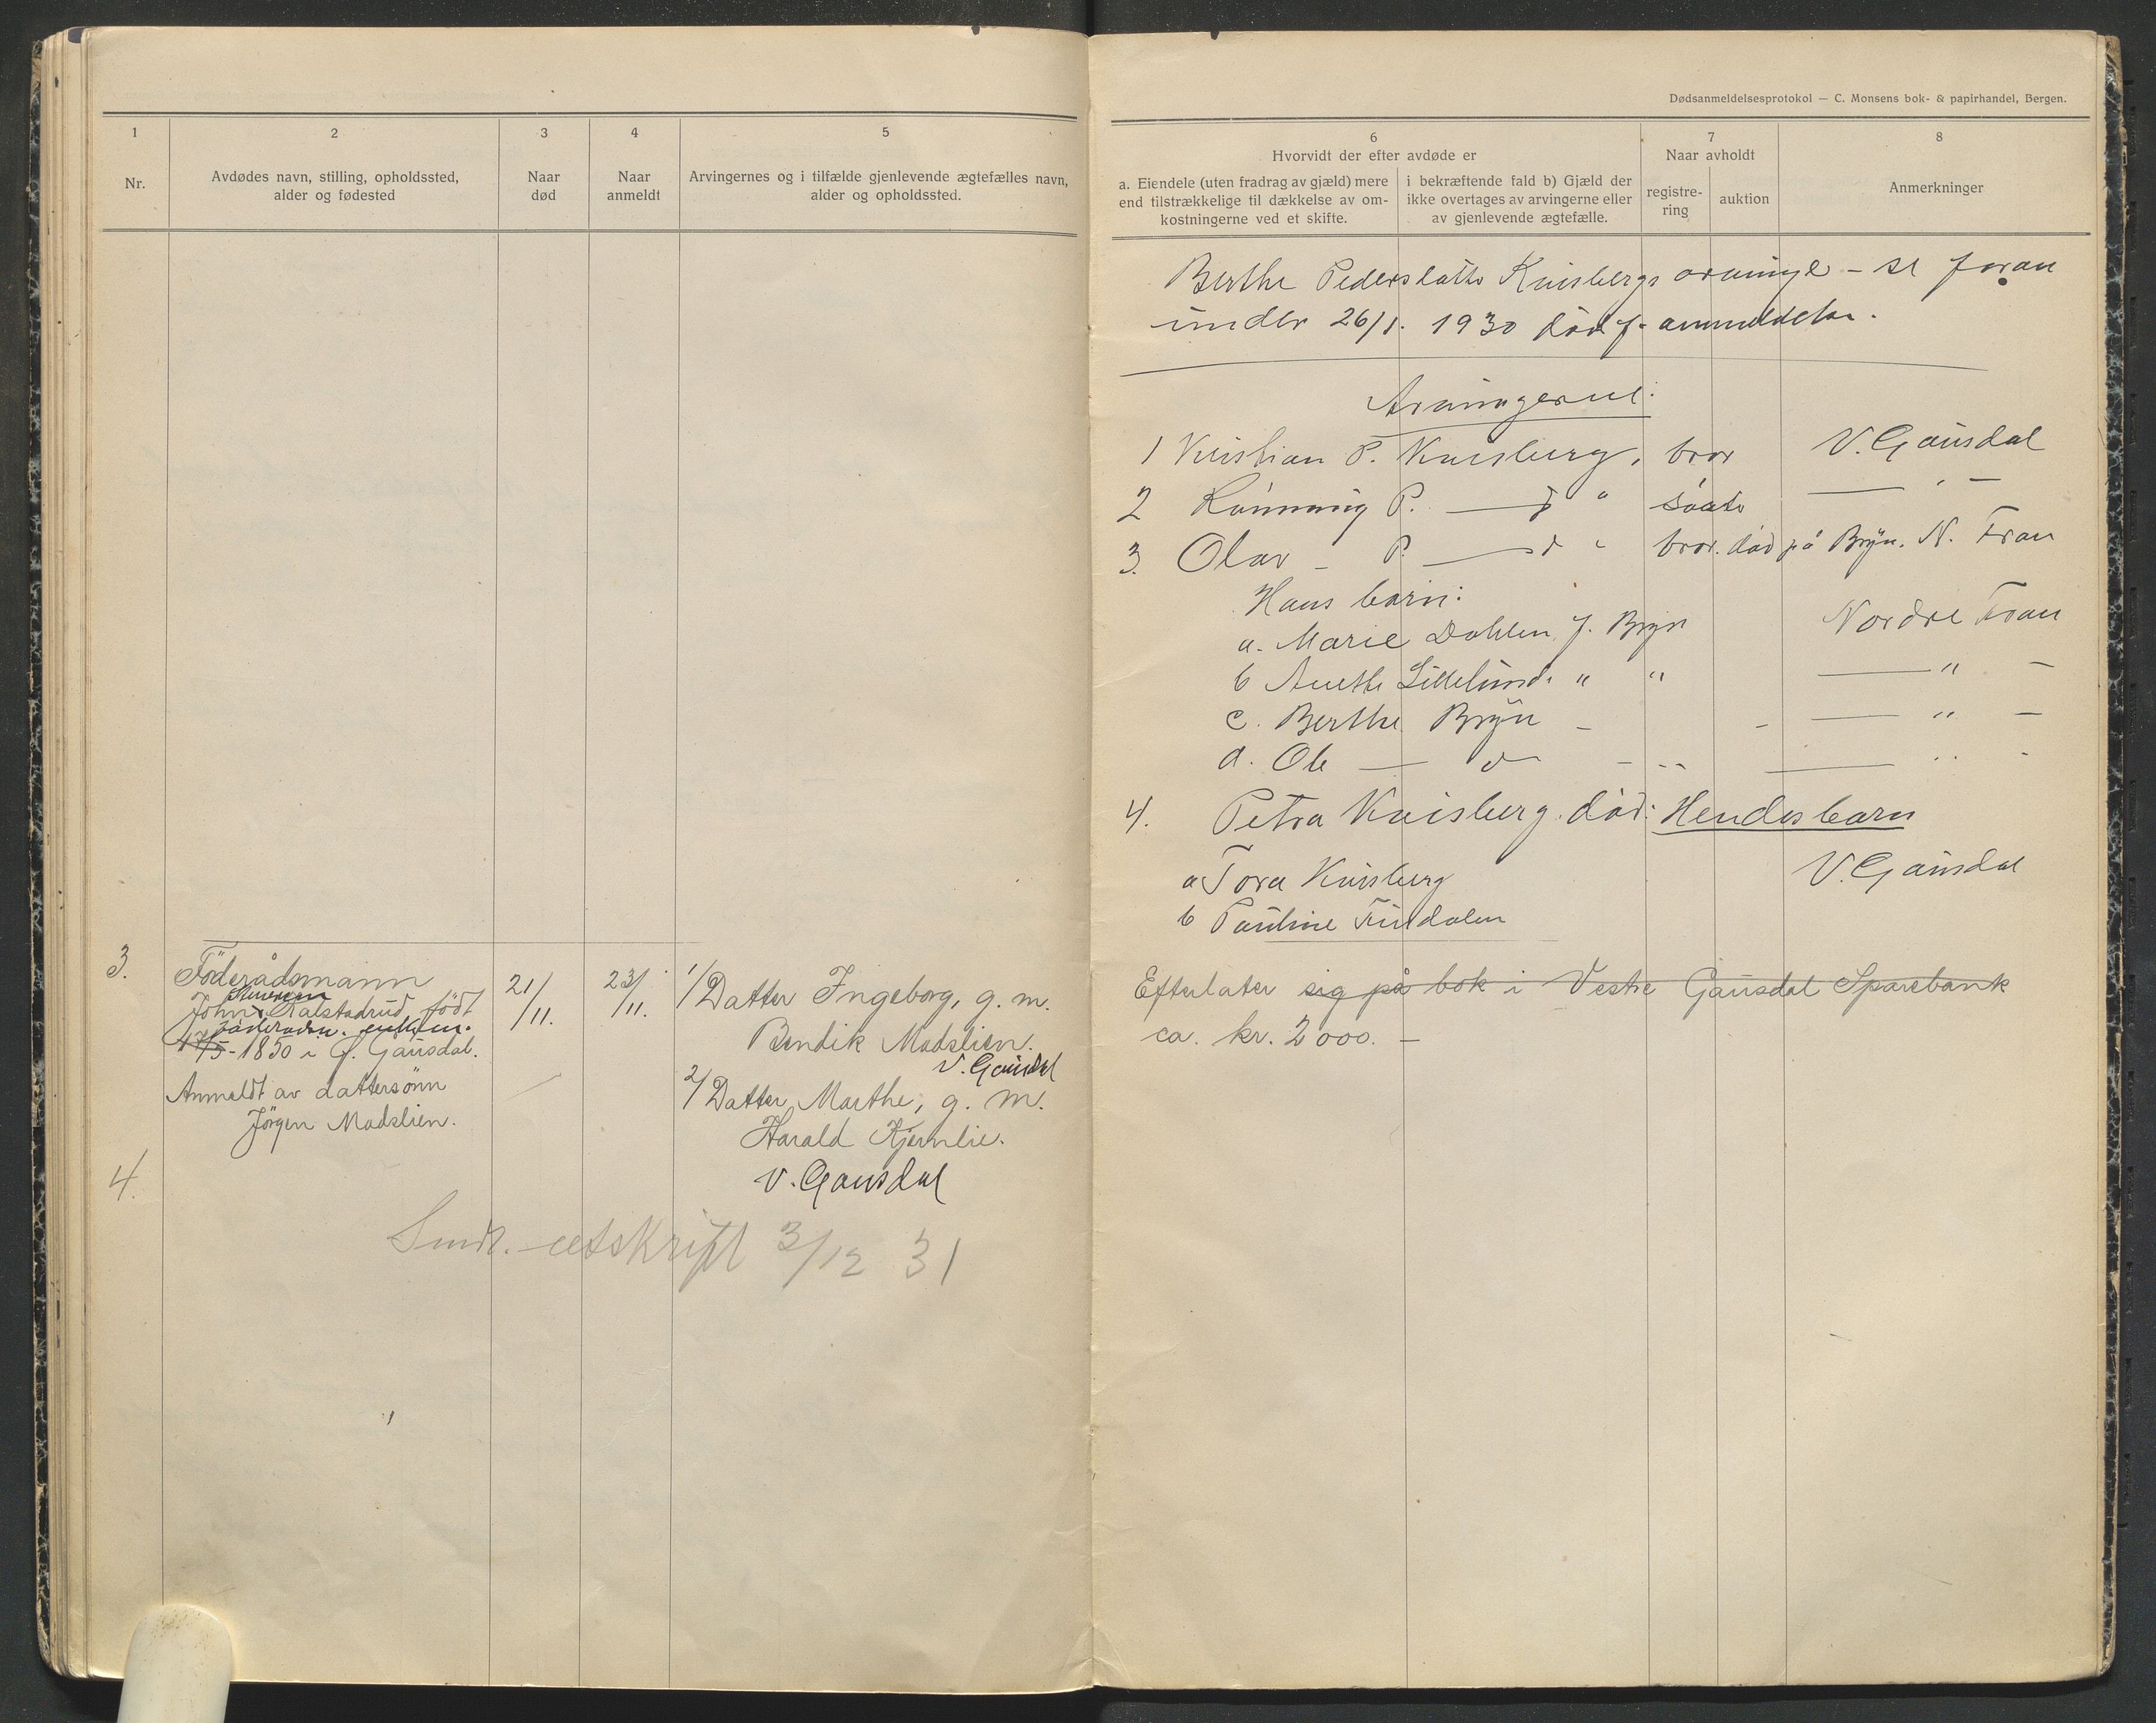 1
2
3
4
5
Nr.
Avdødes navn, stilling, opholdssted,
alder og fødested
Naar
død
Naar
anmeldt
Arvingernes og i tilfælde gjenlevende ægtefælles navn,
alder og opholdssted.
3.
Föderådsmann
John Kalstadrud, født
17/5-1850 i Ø. Gausdal.
Anmeldt av dattersönn
Jörgen Madslien.
21/11.
23/11.
1/ Datter Ingeborg, g. m.
Bendik Madslien.
V. Gausdal
2/ Datter Marthe, g. m.
Harald Kjernlie.
V. Gausdal
4.
Sendt utskrift 3/12 31
Dødsanmeldelsesprotokol — C. Monsens bok- & papirhandel, Bergen.
6
7
8
Hvorvidt der efter avdøde er
Naar avholdt
a. Eiendele (uten fradrag av gjæld) mere
end tilstrækkelige til dækkelse av om-
kostningerne ved et skifte.
i bekræftende fald b) Gjæld der
ikke overtages av arvingerne eller
av gjenlevende ægtefælle.
registre-
ring
auktion
Anmerkninger
Berthe Pedersdatter Kvisbergs arvinge - se foran
under 26/1. 1930 dødsf. anmeldelse.
Arvingerne:
1 Kristian P. Kvisberg, bror V. Gausdal
2 Rønnaug P. — " — søster — " —
3. Olav - P. — " — bror. død på Bryn. N. Fron
Hans barn:
a. Marie Dahlen f. Bryn Nordre Fron
b Anethe Lillelund " " — " —
c. Berthe Bryn - - — " —
d. Ole — " — - — " —
4. Petra Kvisberg. død: Hendes barn
a Tora Kvisberg V. Gausdal
b Pauline Findalen
Efterlater sig på bok i Vestre Gausdal Sparebank
ca. kr. 2000. —